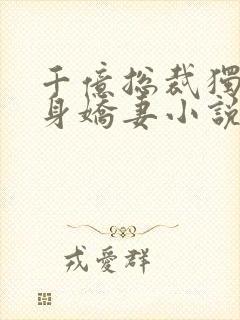 千億總裁獨
身嬌妻小說
戎愛群